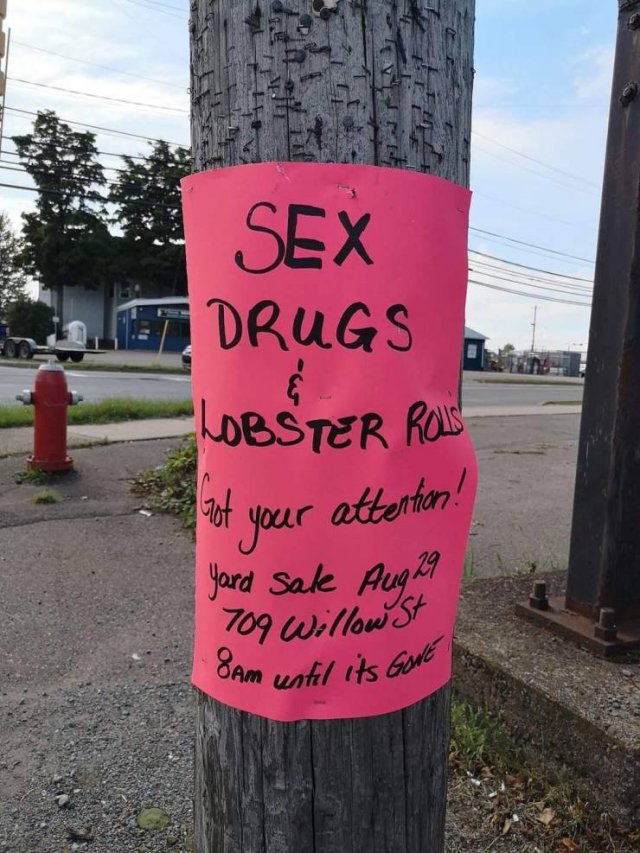 SEX
DRUGS
&
LOBSTER ROLLS
Got your attention!
yard sale Aug 29
709 Willow St
8AM until its GONE